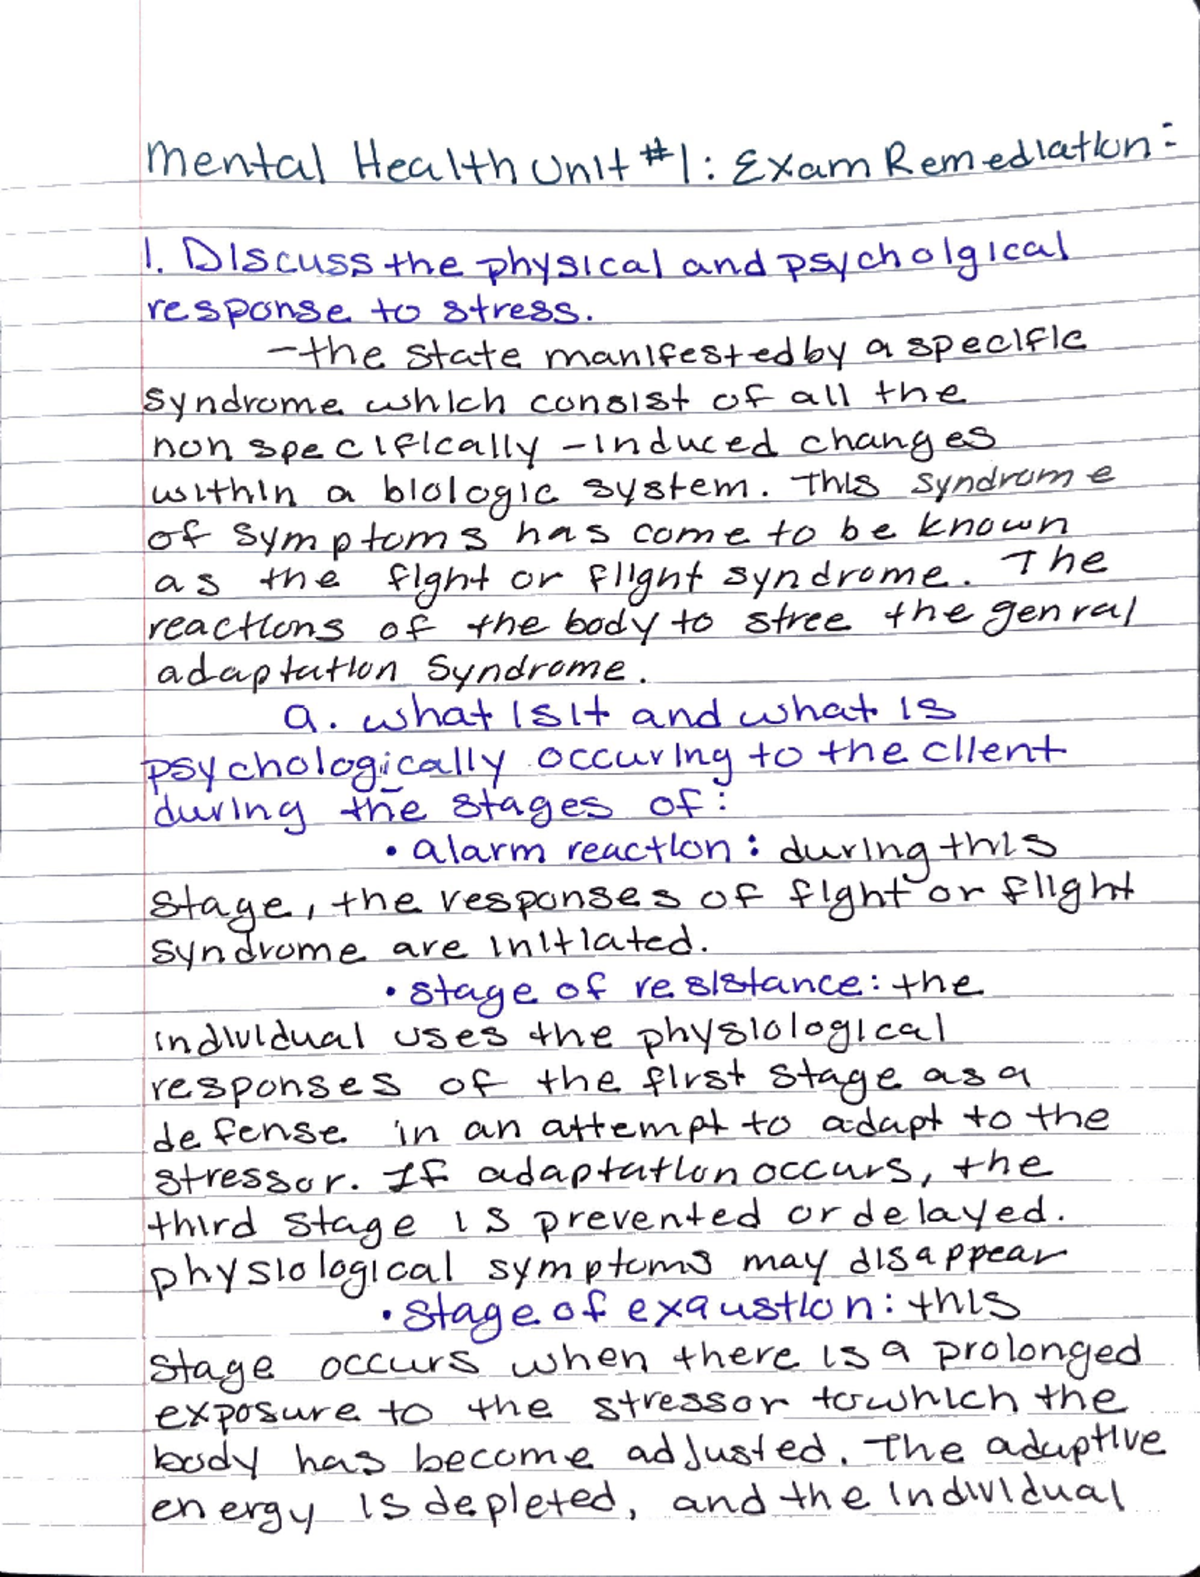 Mental Health Unit #1: Exam Remediation:
1. Discuss the physical and psycholgical
response to stress.
- the state manifested by a specific
syndrome which consist of all the
non specifically - induced changes
within a biologic system. This syndrome
of symptoms has come to be known
as the fight or flight syndrome. The
reactions of the body to stree the genral
adaptation Syndrome.
a. what is it and what is
psychologically occuring to the client
during the stages of:
• alarm reaction: during this
stage, the responses of fight or flight
syndrome are initiated.
• stage of resistance: the
individual uses the physiological
responses of the first stage as a
defense in an attempt to adapt to the
stressor. If adaptation occurs, the
third stage is prevented or delayed.
physiological symptoms may disappear
• stage of exaustion: this
stage occurs when there is a prolonged
exposure to the stressor to which the
body has become adjusted. The adaptive
energy is depleted, and the individual